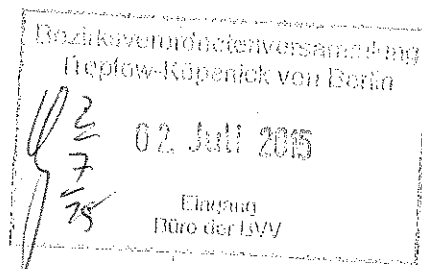 Bezirksverordnetenversammlung
Treptow-Köpenick von Berlin
02. Juli 2015
2/7/15
Eingang
Büro der BVV